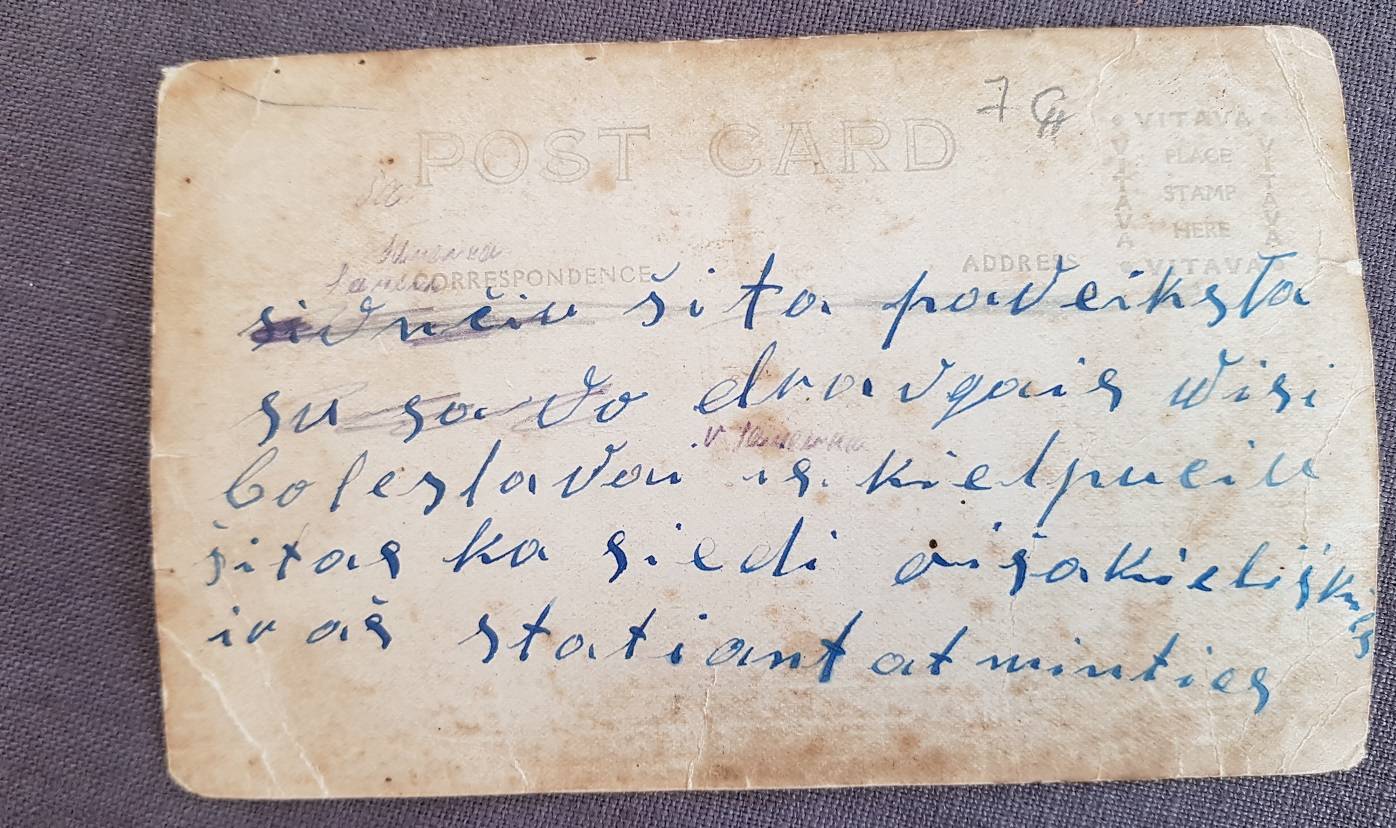 7
POST CARD
VITAVA
PLACE
STAMP
HERE
VITAVA
VITAVA
VITAVA
CORRESPONDENCE
ADDRESS
siunčiu šita paveiksta
su savo dravgais visi
boleslavai is kielpuciu
šitas ka siedi aisakieliškis
ir aš statiant atminties